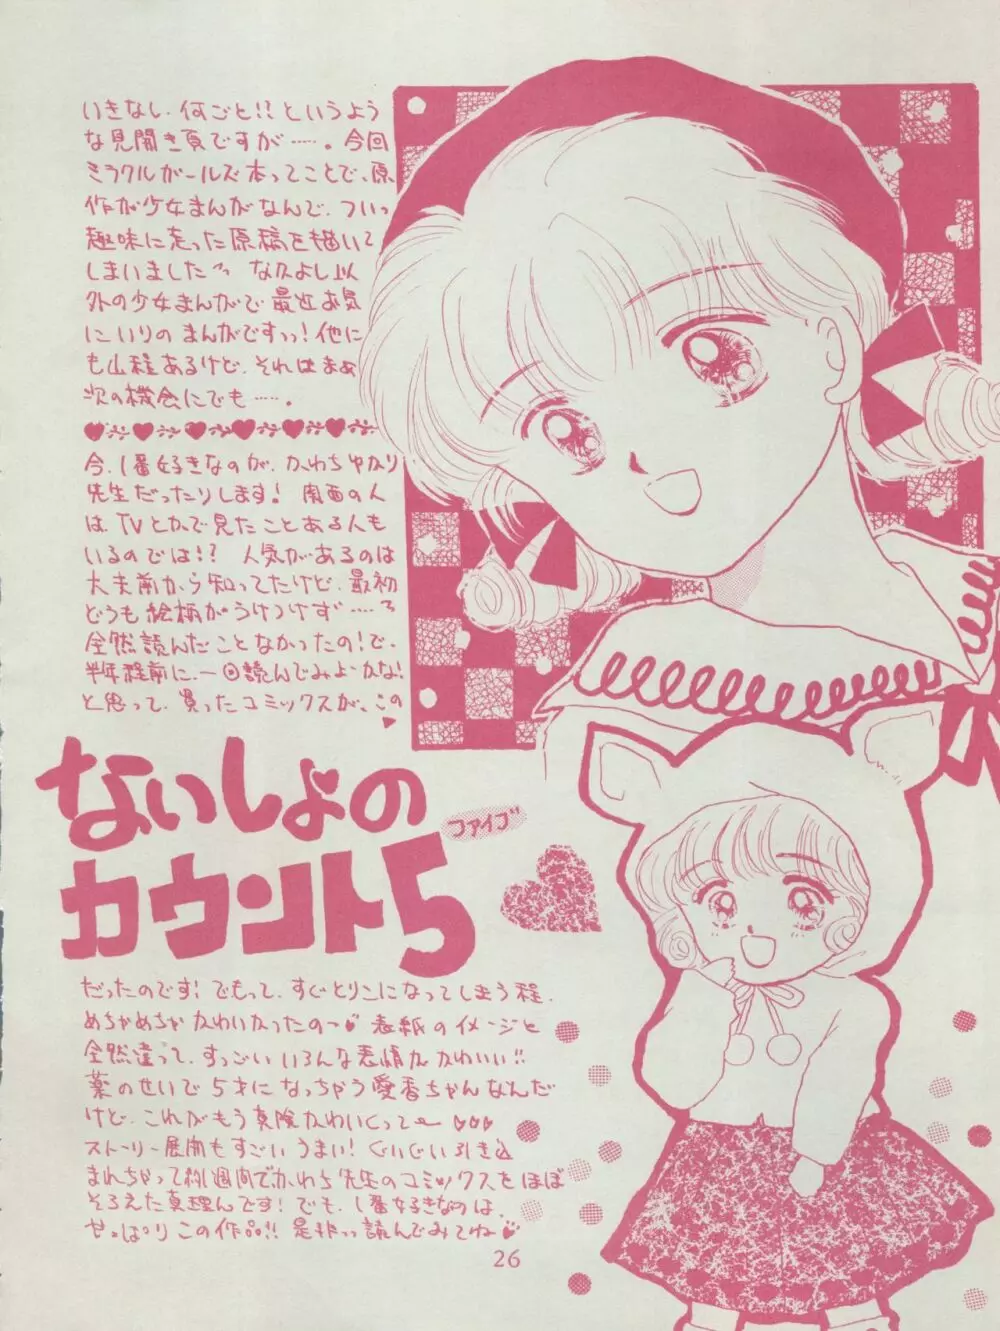 いきなし、何ごと!?というよう
な見開き頁ですが……。今回
ミラクルガールズ本ってことで、原
作が少女まんがなんで、ついっ
趣味に走った原稿を描いて
しまいました なかよし以
外の少女まんがで最近お気
にいりのまんがですっ!他に
も山程あるけど、それはまぁ
次の機会にでも……。
今、1番好きなのが、かわちゆかり
先生だったりします! 関西の人
は、TVとかで見たことある人も
いるのでは!? 人気があるのは
大夫前から知ってたけど、最初
どうも絵柄がうけつけず……
全然読んだことなかったの!で、
半年程前に、一回読んでみよかな!
と思って、買ったコミックスが、この
ないしょの
カウント5
ファイブ
だったのです!でもって、すぐとりこになってしまう程、
めちゃめちゃかわいかったの〜 表紙のイメージと
全然違って、すっごいいろんな表情がかわいい!!
薬のせいで5才になっちゃう愛香ちゃんなんだ
けど、これがもう真険かわいくって〜
ストーリー展開もすごいうまい!ぐいぐい引き込
まれちゃって約1週間でかわち先生のコミックスをほぼ
そろえた真理んです!でも、1番好きなのは、
やっぱりこの作品!!是非っっ読んでみてね
26